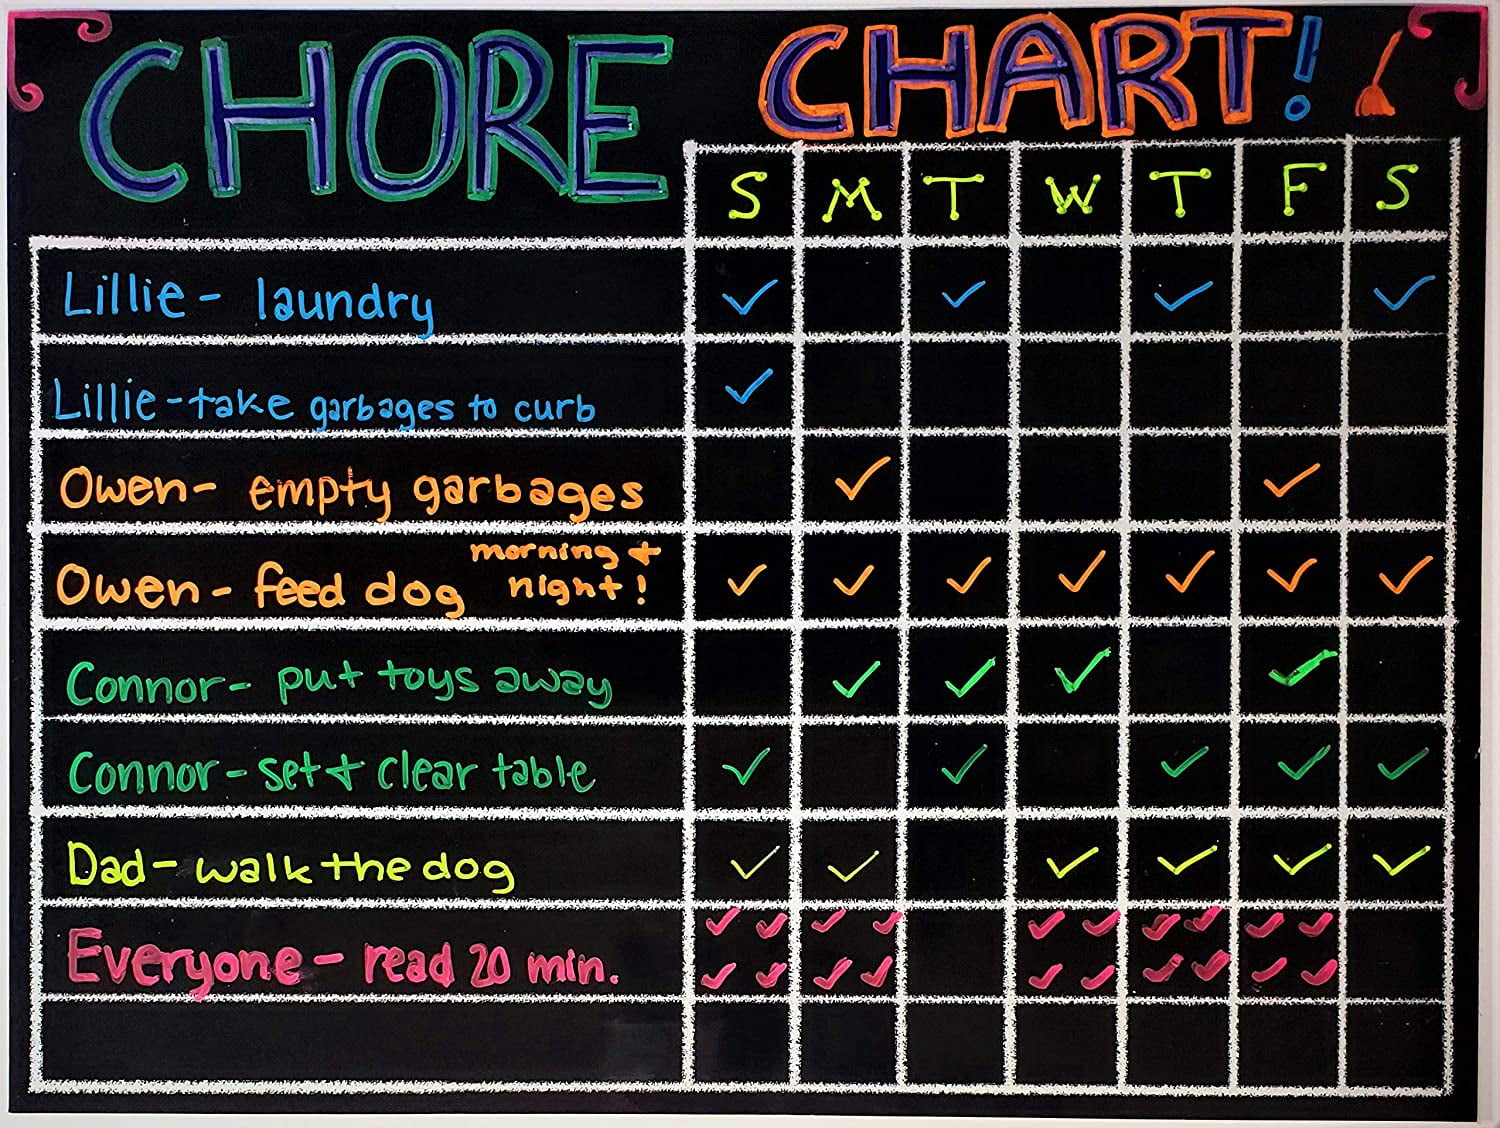 CHORE CHART!
S M T W T F S
Lillie - laundry
Lillie - take garbages to curb
Owen - empty garbages
Owen - feed dog morning + night!
Connor - put toys away
Connor - set + clear table
Dad - walk the dog
Everyone - read 20 min.